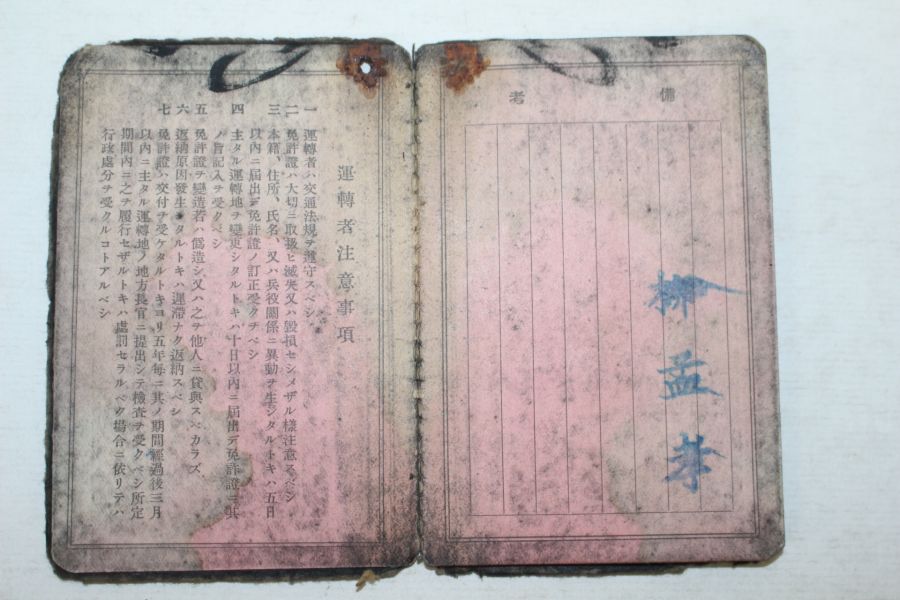 備考
柳孟
運轉者注意事項
一 運轉者ハ交通法規ヲ遵守スベシ
二 免許證ハ大切ニ取扱ヒ滅失又ハ毀損セシメザル樣注意スベシ
三 本籍、住所、氏名、又ハ兵役關係ニ異動ヲ生ジタルトキハ五日
以內ニ屆出デ免許證ノ訂正受クチベシ
四 主タル運轉地ヲ變更シタルトキハ十日以內ニ屆出デ免許證ニ其
ノ旨記入ヲ受クベシ
五 免許證ヲ變造若ハ僞造シ又ハ之ヲ他人ニ貸與スベカラズ
六 返納原因發生シタルトキハ遲滯ナク返納スベシ
七 免許證ハ交付ヲ受ケタルトキヨリ五年每ニ其ノ期間經過後三月
以內ニ主タル運轉地ノ地方長官ニ提出シテ檢査ヲ受クベシ所定
期間內ニ之ヲ履行セザルトキハ處罰セラルベク場合ニ依リテハ
行政處分ヲ受クルコトアルベシ